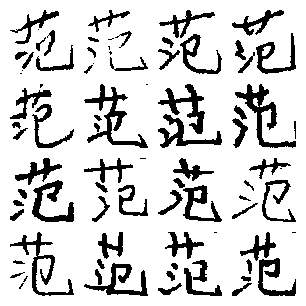 范范范范
范范范范
范范范范
范范范范